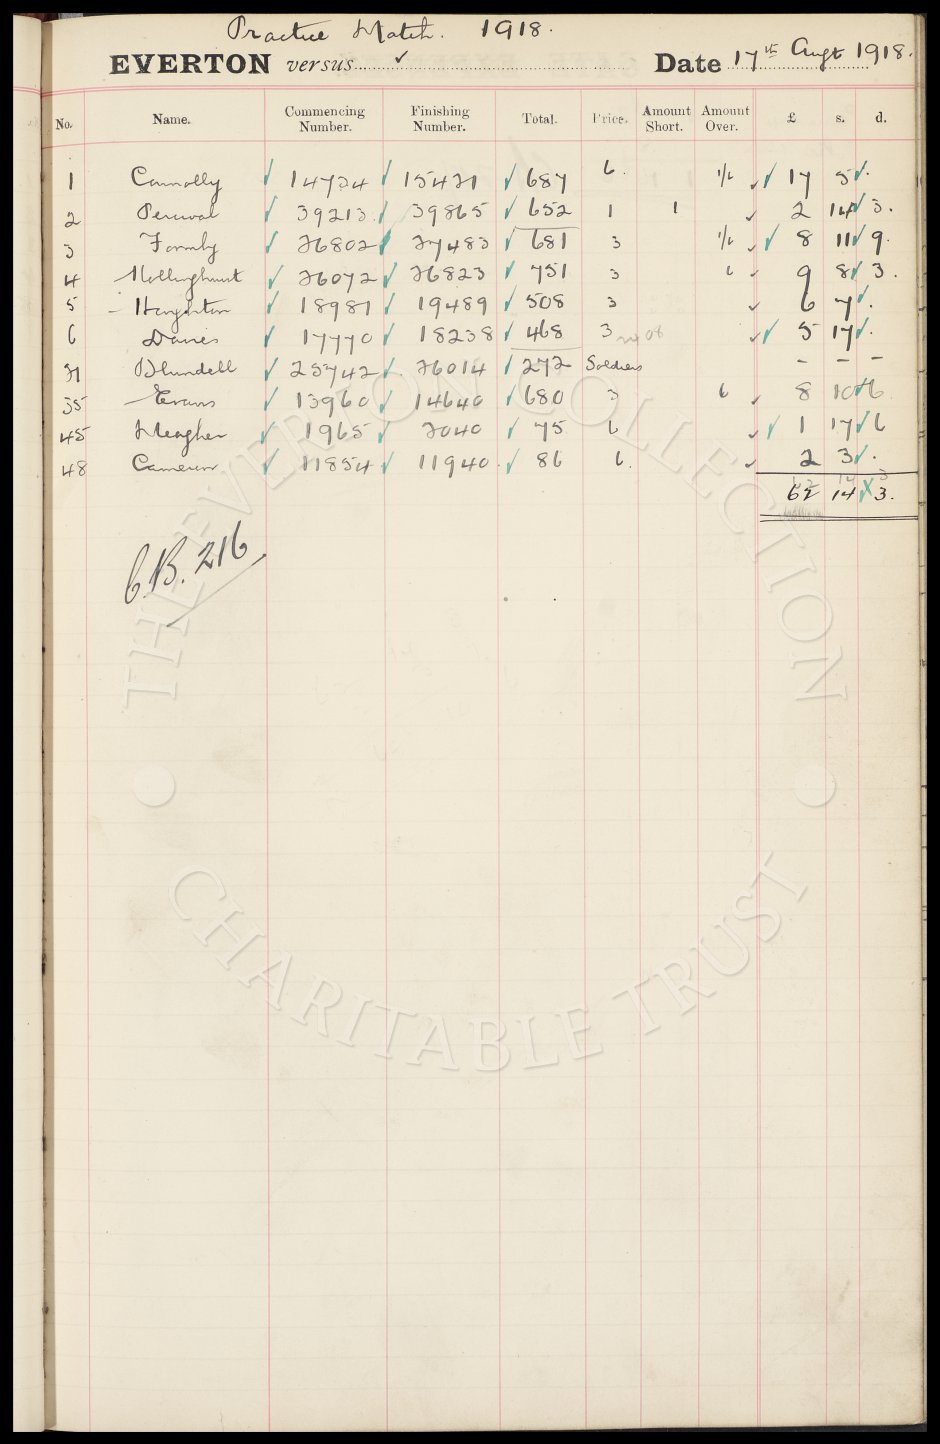 Practice Match. 1918.
EVERTON versus ✓ Date 17th Augt 1918.
No. Name. Commencing Number. Finishing Number. Total. Price. Amount Short. Amount Over. £ s. d.
1 Connolly 14734 15421 687 6. 1/6 17 5 .
2 Percival 39213 39865 652 1 1 2 14 3.
3 Formby 26802 27483 681 3 1/6 8 11 9.
4 Hollinghurst 26072 26823 751 3 6 9 8 3.
5 Houghton 18981 19489 508 3 6 7 .
6 Davies 17770 18238 468 3 5 17 .
31 Blundell 25742 26014 272 Soldiers – – –
35 Evans 13960 14640 680 3 6 8 10 6
45 Meagher 1965 2040 75 6 1 17 6
48 Cameron 11854 11940 86 6. 2 3 .
62 14 3.
C.B. 216.
THE EVERTON COLLECTION
CHARITABLE TRUST